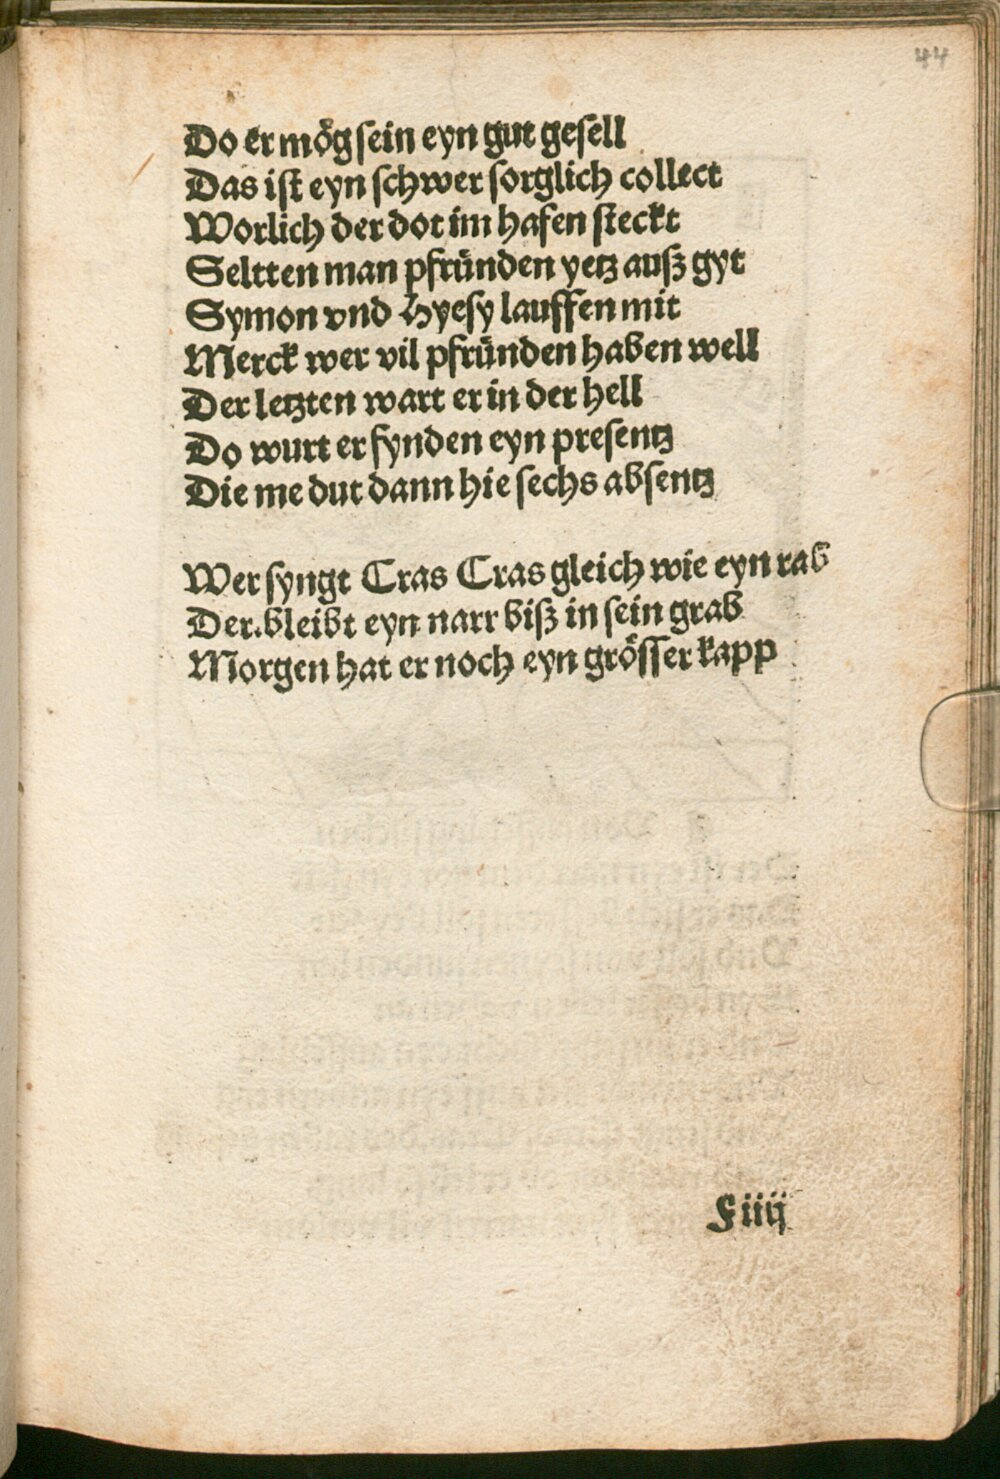 44
Do er mög sein eyn gut gesell
Das ist eyn schwer sorglich collect
Worlich der dot im hafen steckt
Seltten man pfründen yetz auß gyt
Symon vnd Hyesy lauffen mit
Merck wer vil pfründen haben well
Der letzten wart er in der hell
Do wurt er fynden eyn presentz
Die me dut dann hie sechs absentz
Wer syngt Cras Cras gleich wie eyn rab
Der bleibt eyn narr biß in sein grab
Morgen hat er noch eyn grösser kapp
F iiij